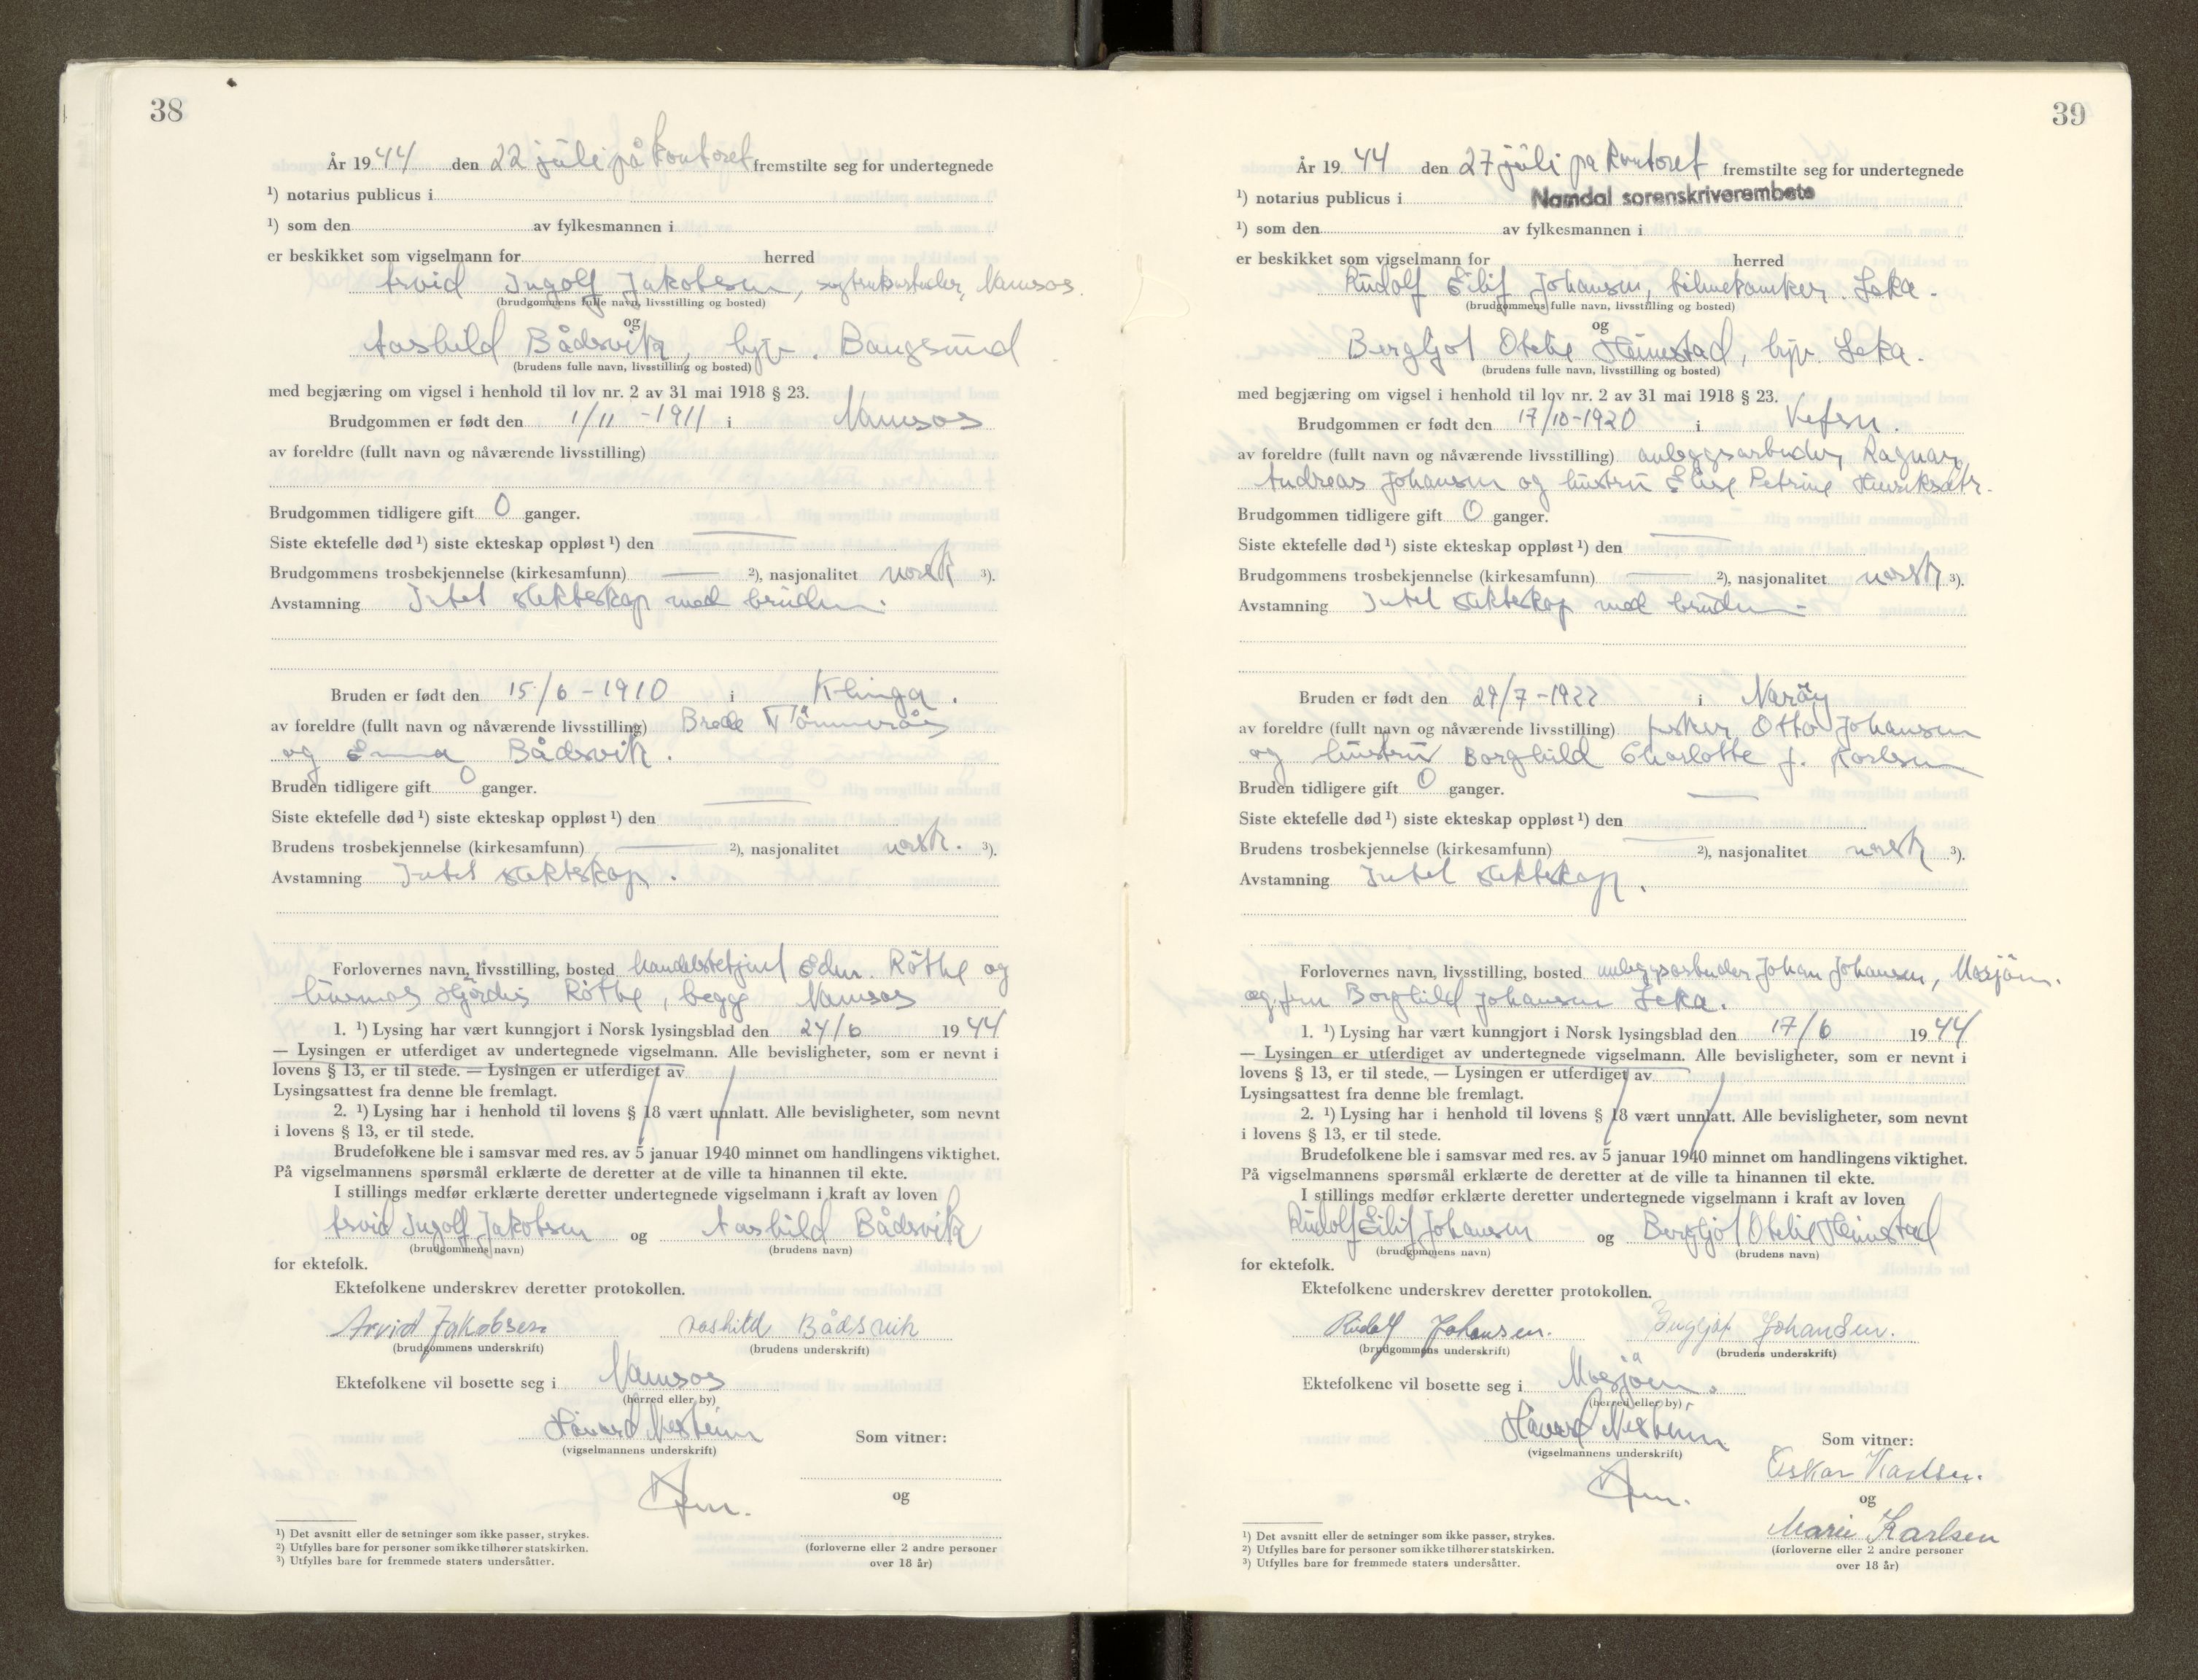 38
År 1944 den 22 juli på kontoret fremstilte seg for undertegnede
¹) notarius publicus i
¹) som den av fylkesmannen i
er beskikket som vigselmann for herred
Arvid Ingolf Jakobsen, Namsos
(brudgommens fulle navn, livsstilling og bosted)
og
Aashild Bådsvik, hjv. Bangsund
(brudens fulle navn, livsstilling og bosted)
med begjæring om vigsel i henhold til lov nr. 2 av 31 mai 1918 § 23.
Brudgommen er født den 1/11-1911 i Namsos
av foreldre (fullt navn og nåværende livsstilling)
Brudgommen tidligere gift 0 ganger.
Siste ektefelle død ¹) siste ekteskap oppløst ¹) den —
Brudgommens trosbekjennelse (kirkesamfunn) — ²), nasjonalitet norsk ³).
Avstamning Intet slektskap med bruden.
Bruden er født den 15/6-1910 i Klinga.
av foreldre (fullt navn og nåværende livsstilling) Brede Tömmerås
og Emma Bådsvik.
Bruden tidligere gift 0 ganger.
Siste ektefelle død ¹) siste ekteskap oppløst ¹) den —
Brudens trosbekjennelse (kirkesamfunn) — ²), nasjonalitet norsk. ³).
Avstamning Intet slektskap.
Forlovernes navn, livsstilling, bosted handelsbetjent Edm. Röthe og
husmor Hjördis Röthe, begge Namsos
1. ¹) Lysing har vært kunngjort i Norsk lysingsblad den 24/6 1944
— Lysingen er utferdiget av undertegnede vigselmann. Alle bevisligheter, som er nevnt i
lovens § 13, er til stede. — Lysingen er utferdiget av
Lysingsattest fra denne ble fremlagt.
2. ¹) Lysing har i henhold til lovens § 18 vært unnlatt. Alle bevisligheter, som nevnt
i lovens § 13, er til stede.
Brudefolkene ble i samsvar med res. av 5 januar 1940 minnet om handlingens viktighet.
På vigselmannens spørsmål erklærte de deretter at de ville ta hinannen til ekte.
I stillings medfør erklærte deretter undertegnede vigselmann i kraft av loven
Arvid Ingolf Jakobsen og Aashild Bådsvik
(brudgommens navn) (brudens navn)
for ektefolk.
Ektefolkene underskrev deretter protokollen.
Arvid Jakobsen Aashild Bådsvik
(brudgommens underskrift) (brudens underskrift)
Ektefolkene vil bosette seg i Namsos
(herred eller by)
Håvard Nestein
(vigselmannens underskrift) Som vitner:
og
¹) Det avsnitt eller de setninger som ikke passer, strykes.
²) Utfylles bare for personer som ikke tilhører statskirken.
³) Utfylles bare for fremmede staters undersåtter.
(forloverne eller 2 andre personer
over 18 år)
39
År 1944 den 27 juli på kontoret fremstilte seg for undertegnede
¹) notarius publicus i Namdal sorenskriverembete
¹) som den av fylkesmannen i
er beskikket som vigselmann for herred
Rudolf Eilif Johansen, Leka.
(brudgommens fulle navn, livsstilling og bosted)
og
Bergljot Otelie Heimstad, hjv. Leka.
(brudens fulle navn, livsstilling og bosted)
med begjæring om vigsel i henhold til lov nr. 2 av 31 mai 1918 § 23.
Brudgommen er født den 17/10-1920 i Vefsn.
av foreldre (fullt navn og nåværende livsstilling) anleggsarbeider Ragnar
Andreas Johansen og hustru Elise Petrine Henriksdtr.
Brudgommen tidligere gift 0 ganger.
Siste ektefelle død ¹) siste ekteskap oppløst ¹) den —
Brudgommens trosbekjennelse (kirkesamfunn) — ²), nasjonalitet norsk ³).
Avstamning Intet slektskap med bruden –
Bruden er født den 29/7-1922 i Naröy
av foreldre (fullt navn og nåværende livsstilling) fisker Otto Johansen
og hustru Borghild Charlotte f. Karlsen
Bruden tidligere gift 0 ganger.
Siste ektefelle død ¹) siste ekteskap oppløst ¹) den —
Brudens trosbekjennelse (kirkesamfunn) — ²), nasjonalitet norsk ³).
Avstamning Intet slektskap.
Forlovernes navn, livsstilling, bosted anleggsarbeider Johan Johansen, Mosjöen.
og fru Borghild Johansen Leka.
1. ¹) Lysing har vært kunngjort i Norsk lysingsblad den 17/6 1944
— Lysingen er utferdiget av undertegnede vigselmann. Alle bevisligheter, som er nevnt i
lovens § 13, er til stede. — Lysingen er utferdiget av
Lysingsattest fra denne ble fremlagt.
2. ¹) Lysing har i henhold til lovens § 18 vært unnlatt. Alle bevisligheter, som nevnt
i lovens § 13, er til stede.
Brudefolkene ble i samsvar med res. av 5 januar 1940 minnet om handlingens viktighet.
På vigselmannens spørsmål erklærte de deretter at de ville ta hinannen til ekte.
I stillings medfør erklærte deretter undertegnede vigselmann i kraft av loven
Rudolf Eilif Johansen og Bergljot Otelie Heimstad
(brudgommens navn) (brudens navn)
for ektefolk.
Ektefolkene underskrev deretter protokollen.
Rudolf Johansen. Bergljot Johansen.
(brudgommens underskrift) (brudens underskrift)
Ektefolkene vil bosette seg i Mosjöen.
(herred eller by)
Håvard Nestein
(vigselmannens underskrift) Som vitner:
Karlsen.
og
Marie Karlsen
¹) Det avsnitt eller de setninger som ikke passer, strykes.
²) Utfylles bare for personer som ikke tilhører statskirken.
³) Utfylles bare for fremmede staters undersåtter.
(forloverne eller 2 andre personer
over 18 år)